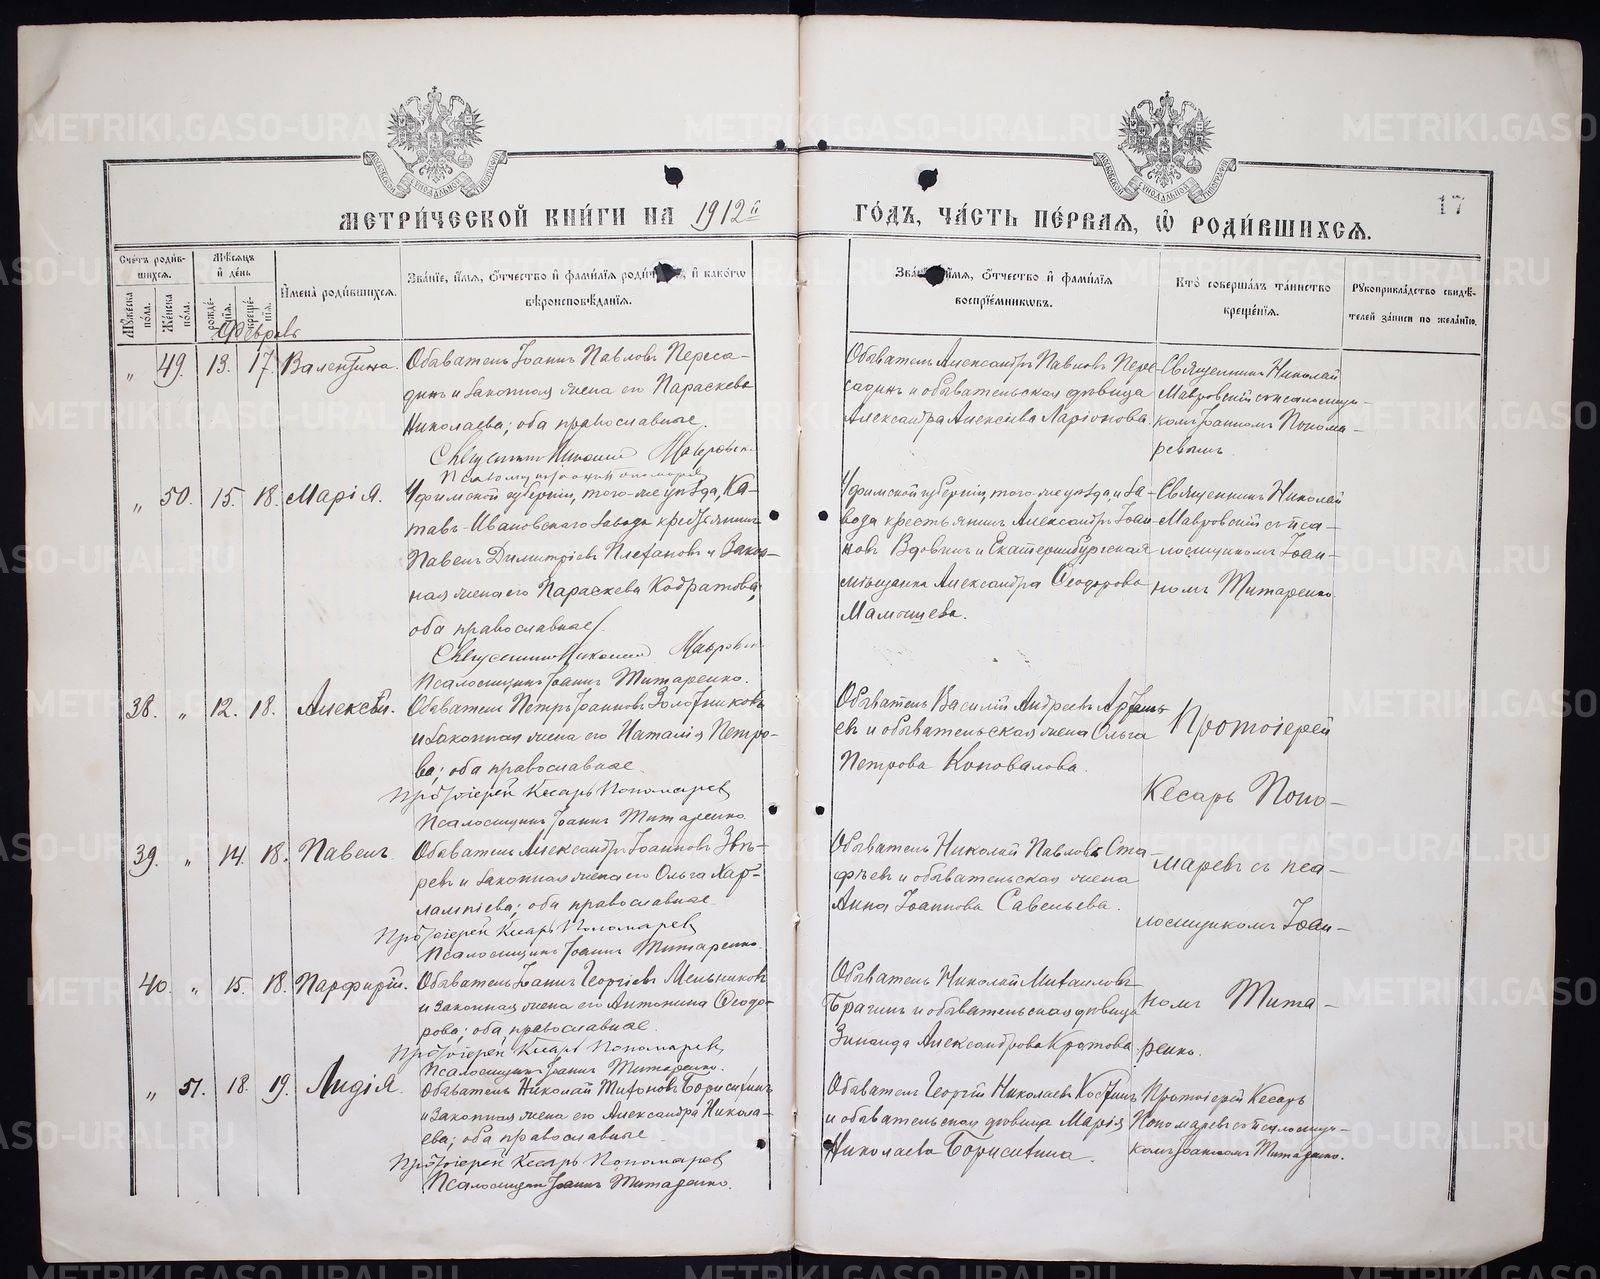 МЕТРИ́ЧЕСКОЙ КНИ́ГИ НА 1912й ГО́ДЪ, ЧА́СТЬ ПЕ́РВАЯ, Ѡ҆ РОДИ́ВШИХСЯ.
17
Сче́тъ роди́в-
шихся.
Му́жеска
по́ла.
Же́нска
по́ла.
Мѣ́сяцъ
и҆ де́нь
рожде́-
нїя.
креще́-
нїя.
И҆мена̀ роди́вшихся.
Зва́нїе, и҆́мя, ѻ҆́тчество и҆ фами́лїя роди́телей, и҆ како́гѡ
вѣроисповѣ́данїя.
Зва́нїе, и҆́мя, ѻ҆́тчество и҆ фами́лїя
воспрїе́мникѡвъ.
Кто̀ соверша́лъ та́инство
креще́нїя.
Рꙋкоприкла́дство свидѣ́-
телей за́писи по жела́нїю.
Февраль
„ 49. 13. 17. Валентина.
Обыватель Іоаннъ Павловъ Переса-
динъ и законная жена его Параскева
Николаева; оба православные.
Священникъ Николай Мавровскій
Обыватель Александръ Павловъ Пере-
садинъ и обывательская дѣвица
Александра Алексѣева Ларіонова
Священникъ Николай
Мавровскій съ псаломщи-
комъ Іоанномъ Понома-
ревымъ.
„ 50. 15. 18. Марія.
Уфимской губерніи, того-же уѣзда, Ка-
тавъ-Ивановскаго завода крестьянинъ
Павелъ Димитріевъ Плехановъ и закон-
ная жена его Параскева Кодратова;
оба православные.
Священникъ Николай Мавровскій
Псаломщикъ Іоаннъ Титаренко.
Уфимской губерніи, того-же уѣзда и за-
вода крестьянинъ Александръ Іоан-
новъ Вдовинъ и Екатеринбургская
мѣщанка Александра Ѳеодорова
Мамышева.
Священникъ Николай
Мавровскій съ пса-
ломщикомъ Іоан-
номъ Титаренко
38. „ 12. 18. Алексѣй.
Обыватель Петръ Іоанновъ Золотниковъ
и законная жена его Наталія Петро-
ва; оба православные.
Протоіерей Кесарь Пономаревъ
Псаломщикъ Іоаннъ Титаренко
Обыватель Василій Андреевъ
и обывательская жена Ольга
Петрова Коновалова.
Протоіерей
Кесарь Поно-
маревъ съ пса-
ломщикомъ Іоан-
номъ Тита-
ренко.
39. „ 14. 18. Павелъ.
Обыватель Александръ Іоанновъ Звѣ-
ревъ и законная жена его Ольга Хар-
лампіева; оба православные.
Протоіерей Кесарь Пономаревъ
Псаломщикъ Іоаннъ Титаренко.
Обыватель Николай Павловъ Ста-
фѣевъ и обывательская жена
Анна Іоаннова Савельева.
40. „ 15. 18. Парфирій.
Обыватель Іоаннъ Георгіевъ Мельниковъ
и законная жена его Антонина Ѳеодо-
рова; оба православные.
Протоіерей Кесарь Пономаревъ
Псаломщикъ Іоаннъ Титаренко.
Обыватель Николай Михаиловъ
Брагинъ и обывательская дѣвица
Зинаида Александрова Кротова.
„ 51. 18. 19. Лидія.
Обыватель Николай Тихоновъ Борисихинъ
и законная жена его Александра Никола-
ева; оба православные.
Протоіерей Кесарь Пономаревъ
Псаломщикъ Іоаннъ Титаренко.
Обыватель Георгій Николаевъ Костинъ
и обывательская дѣвица Марія
Николаева Борисихина.
Протоіерей Кесарь
Пономаревъ съ псаломщи-
комъ Іоанномъ Титаренко.
METRIKI.GASO-URAL.RU